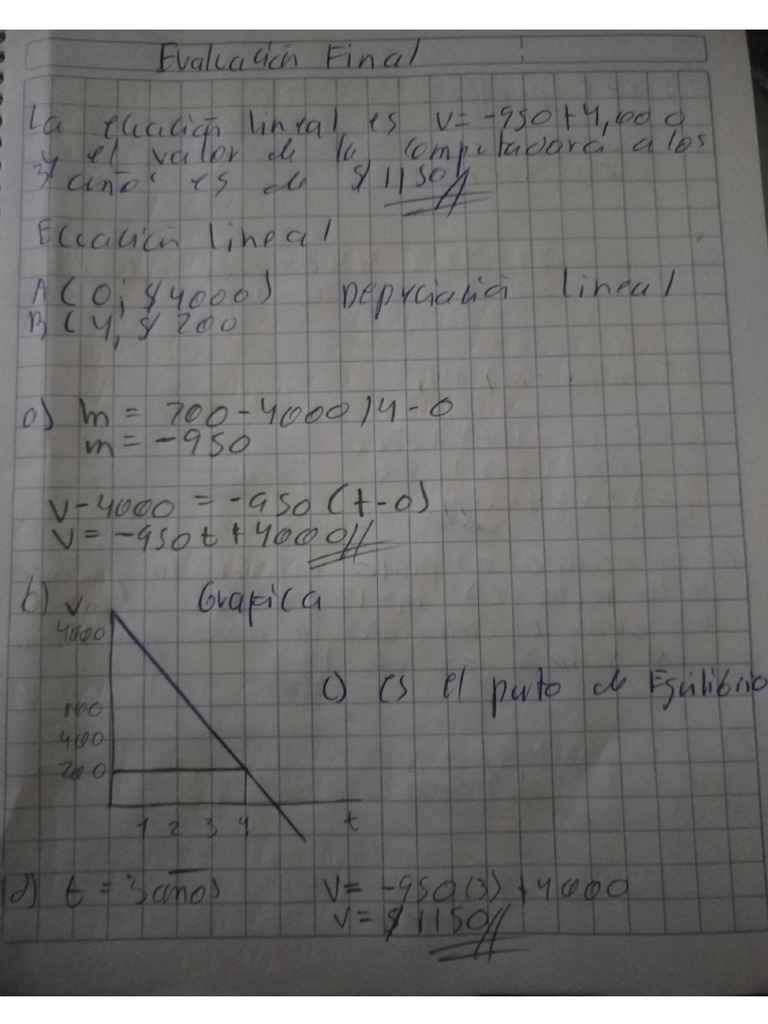 Evaluación Final
La ecuación lineal es V= -950+4,000
y el valor de la computadora a los
3 año es de $1150
Ecuación lineal
A ( 0; $4000)   Depreciació lineal
B ( 4, $200
a) m = 200-4000/4-0
m = -950
V-4000 = -950 (t-0)
V= -950t +4000
b) V   Grafica
4000
c) es el puto de Equilibrio
800
400
200
1 2 3 4   t
d) t = 3 años   V= -950(3)+4000
V= $1150